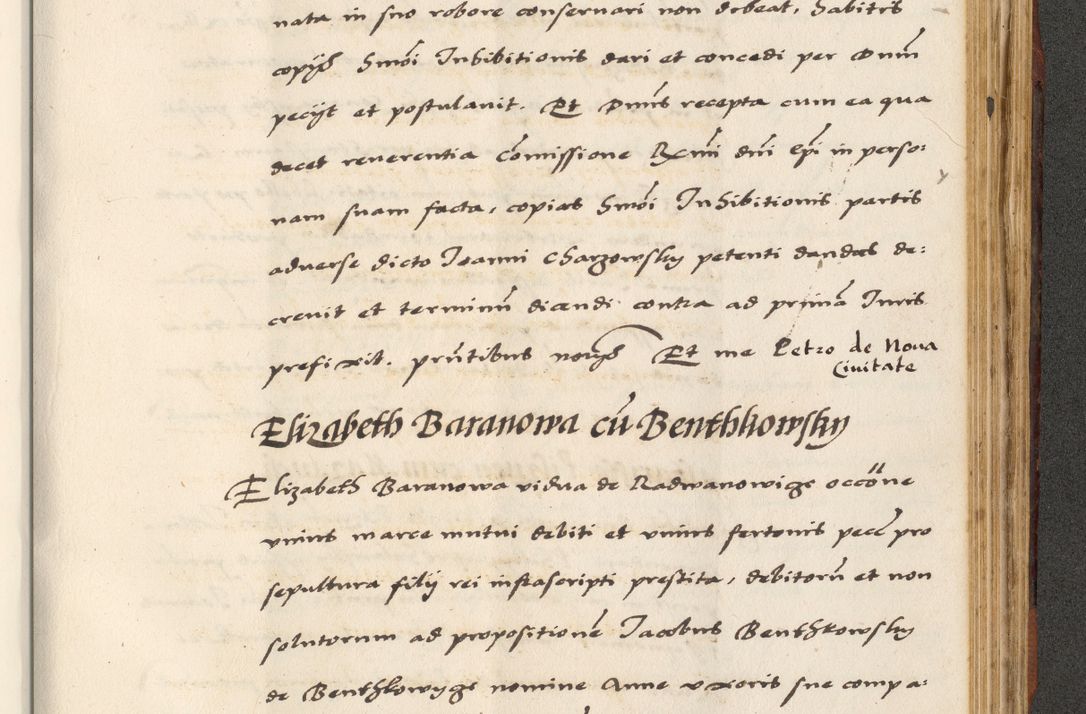 nata in suo robore conseruari non debeat, habitis
copijs hmoi Inhibitionis dari et concedi per Dnum
pecijt et postulauit. Et Dnus recepta cum ea qua
decet reuerentia Comissione Rxmi dni Epi in perso:
nam suam facta, copias hmoi Inhibitionis partis
aduerse dicto Joanni Charzowsky petenti dandas de:
creuit et terminum dicendi contra ad primam Iuris
prefixit. prntibus Et me Petro de Noua
Ciuitate
Elizabeth Baranowa cu Benthkowsky
Elizabeth Baranowa vidua de Radwanowige occone
vnius marce mutui debiti et vnius fertonis pecc pro
sepultura filij rei infrascripti prestita, debitoru et non
solutorum ad propositione Jacobus Benthkowsky
de Benthkowyge nomine Anne vxoris sue compa: